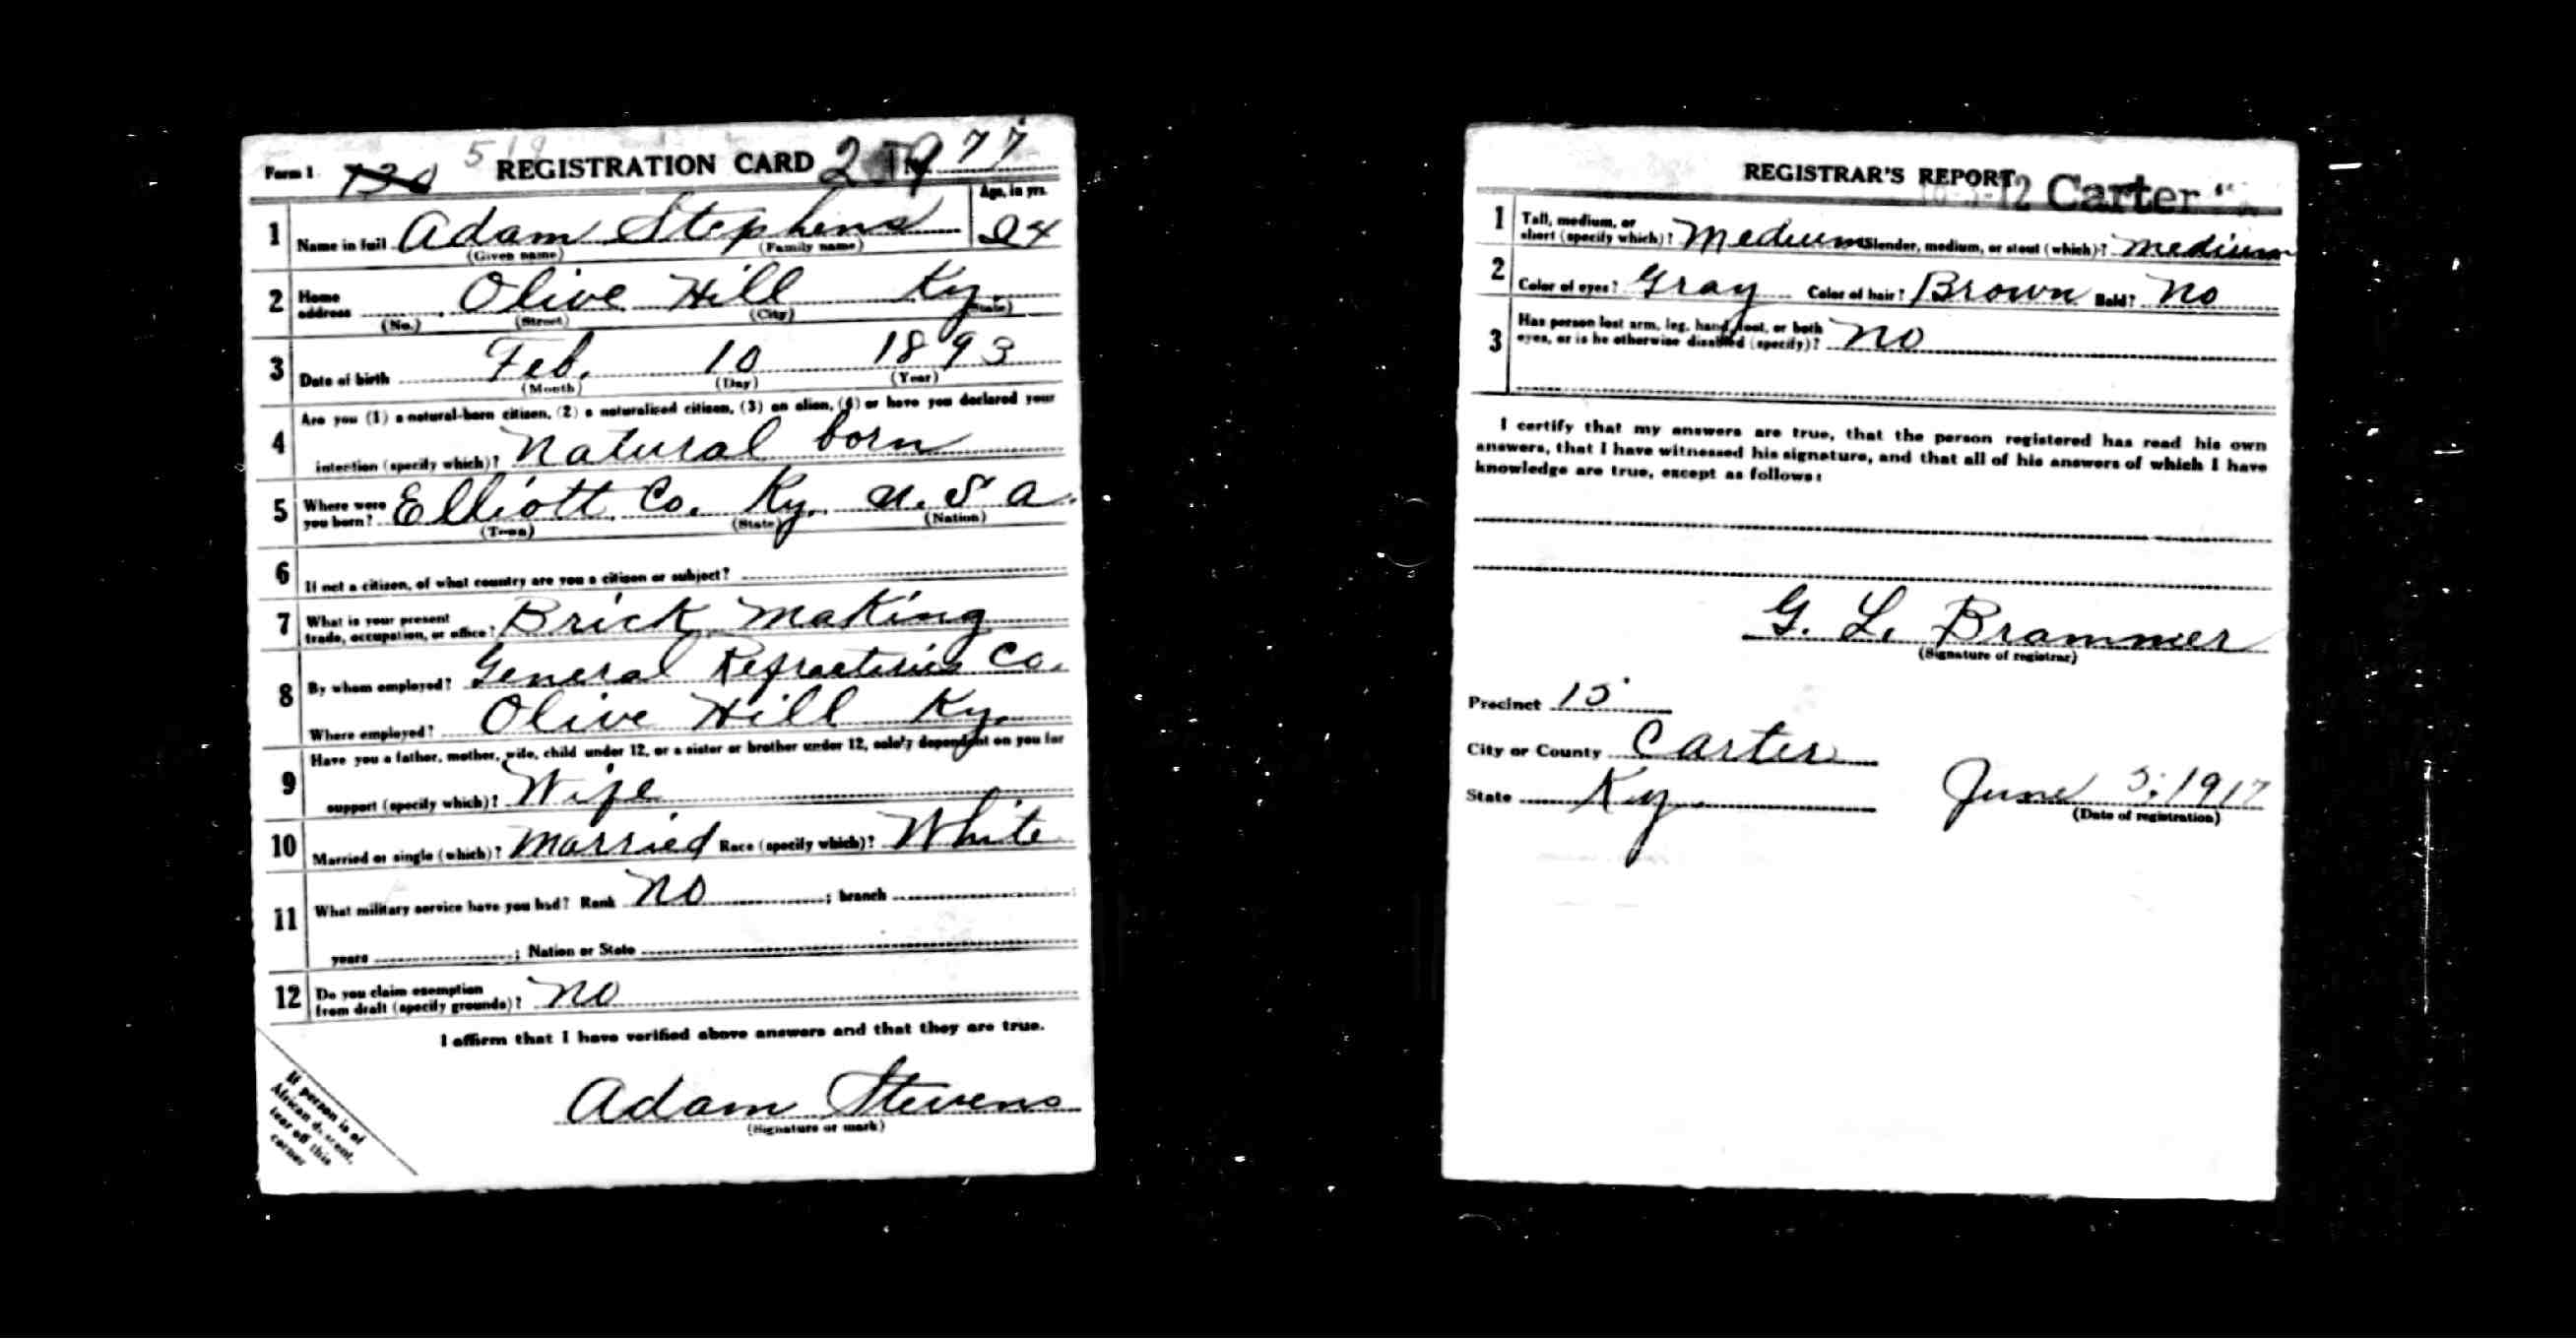 Form 1 730 REGISTRATION CARD No. 77
1 Name in full Adam Stephens Age, in yrs. 24
(Given name) (Family name)
2 Home address Olive Hill Ky.
(No.) (Street) (City) (State)
3 Date of birth Feb. 10 1893
(Month) (Day) (Year)
4 Are you (1) a natural-born citizen, (2) a naturalized citizen, (3) an alien, (4) or have you declared your
intention (specify which)? Natural born
5 Where were you born? Elliott Co. Ky. U.S.A.
(Town) (State) (Nation)
6 If not a citizen, of what country are you a citizen or subject?
7 What is your present trade, occupation, or office? Brick Making
8 By whom employed? General Refractories Co.
Where employed? Olive Hill Ky.
9 Have you a father, mother, wife, child under 12, or a sister or brother under 12, solely dependent on you for
support (specify which)? Wife
10 Married or single (which)? Married Race (specify which)? White
11 What military service have you had? Rank No ; branch
years ; Nation or State
12 Do you claim exemption from draft (specify grounds)? No
I affirm that I have verified above answers and that they are true.
Adam Stevens
(Signature or mark)
If person is of
African descent,
tear off this
corner
REGISTRAR'S REPORT Carter
1 Tall, medium, or short (specify which)? Medium Slender, medium, or stout (which)? Medium
2 Color of eyes? Gray Color of hair? Brown Bald? No
3 Has person lost arm, leg, hand, foot, or both
eyes, or is he otherwise disabled (specify)? No
I certify that my answers are true, that the person registered has read his own
answers, that I have witnessed his signature, and that all of his answers of which I have
knowledge are true, except as follows:
G. L. Brammer
(Signature of registrar)
Precinct 15
City or County Carter
State Ky June 5, 1917
(Date of registration)